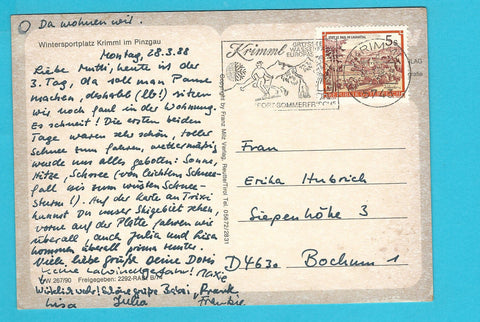 ○ Da wohnen wir.
Wintersportplatz Krimml im Pinzgau
Montag, 28.3.88
Liebe Mutti, heute ist der
3. Tag, da soll man Pause
machen, deshalb (lb!) sitzen
wir noch faul in der Wohnung.
Es schneit! Die ersten beiden
Tage waren sehr schön, toller
Schnee zum fahren, wettermäßig
wurde uns alles geboten: Sonne,
Hitze, Schnee (von leichtem Schnee-
fall bis zum wüsten Schnee-
sturm!). Auf der Karte an Trixi
kannst Du unser Skigebiet sehen,
vorne auf der Platte fahren wir
überall, auch Julia und Lisa
kommen überall prima runter.
Viele liebe Grüße Deine Doris
Keine Lawinengefahr!
Wirklich wahr! Schöne Grüße
Lisa Julia Frankie
267/90 Freigegeben: 2292-RAL
Copyright by Franz Milz Verlag, Reutte/Tirol Tel. 05672/2831
Krimml
GRÖSSTE
WASSER
EUROPAS
SOMMERFRISCHE
5 S
REPUBLIK ÖSTERREICH
KRIMML
5743
Frau
Erika Hubrich
Siepenhöhe 3
D4630 Bochum 1